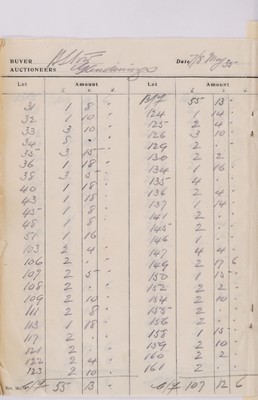 BUYER
AUCTIONEERS Glendining
Date 7/8 May 35
Lot Amount £ s. d. Lot Amount £ s. d.
31 1 8 - B/F 55 13 -
32 1 10 - 124 1 14 -
33 3 10 - 125 2 4 -
34 8 - 126 3 10 -
35 3 15 - 129 2 -
36 1 18 - 130 2 2 -
38 3 5 - 134 1 16 -
40 1 18 - 135 4 -
43 1 15 - 136 2 4 -
45 1 8 - 137 1 14 -
48 1 8 - 141 2 -
51 1 16 - 145 2 -
103 2 4 - 146 1 -
106 2 - 147 4 4 -
107 2 5 - 149 2 17 6
108 2 - 150 1 15 -
109 2 10 - 152 2 2 -
111 2 8 - 154 2 10 -
113 1 18 - 155 2 -
117 2 - 156 2 -
121 2 - 158 1 15 -
122 2 4 - 159 2 10 -
123 2 10 - 160 2 2 -
161 2 -
C/F 55 13 - C/F 107 12 6